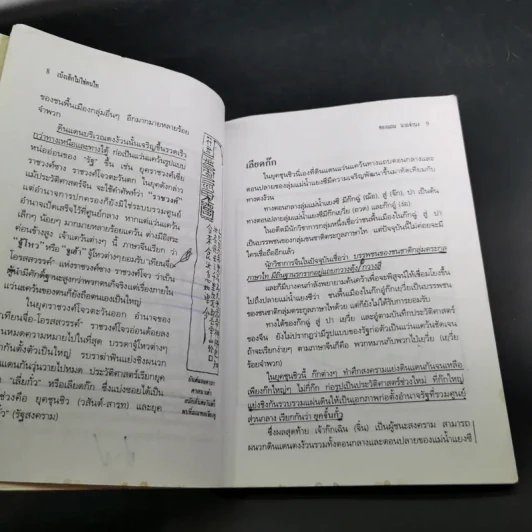 8 เบ้งเฮ็กไม่ใช่คนไทย
ของชนพื้นเมืองกลุ่มอื่นๆ อีกมากมายหลายร้อย
จำพวก
ดินแดนบริเวณตงง้วนนั้นเจริญขึ้นรวดเร็ว
กว่าทางเหนือและทางใต้ ก่อเป็นแว่นแคว้นรูปแบบ
หน่ออ่อนของ "รัฐ" ขึ้น เช่น ยุคราชวงศ์เฮี่ย
ราชวงศ์ซาง ราชวงศ์โจวตะวันตก ในยุคดังกล่าว
แม้ประวัติศาสตร์จีน จะใช้คำศัพท์ว่า "ราชวงศ์"
แต่อำนาจการปกครองก็ยังมิใช่ระบบรวมศูนย์
อำนาจเบ็ดเสร็จไว้ที่ศูนย์กลาง หากแต่แว่นแคว้น
เล็กๆ น้อยๆ มากมายหลายร้อยแคว้น ต่างมีอิสระ
ค่อนข้างสูง เจ้าแคว้นต่างๆ นี้ ภาษาจีนเรียก ว่า
"จูโหว" หรือ "จูเท้า" ผู้โหวต่างๆยอมรับ
โอรสสวรรค์" แห่งราชวงศ์ซาง ราชวงศ์โจว ว่าเป็น
ว่ามีศักดิ์ชั้นสูงกว่าพวกตนก็จริงแต่เรื่องภายใน
แว่นแคว้นของตนก็ยังถือตนเองเป็นใหญ่
ในยุคราชวงศ์โจวตะวันออก อำนาจของ
เทียนจื่อ-โอรสสวรรค์" ราชวงศ์โจวอ่อนด้อยลง
หมดความหมายไปในที่สุด บรรดาจูโหวต่างก็
ตั้งตัวเป็นใหญ่ รบราฆ่าฟันแย่งชิงผนวก
แดนกันวุ่นวายไปหมด ประวัติศาสตร์เรียกยุค
"เลียดก๊ก" หรือเลียดก๊ก ซึ่งแบ่งซอยได้เป็น
ช่วงคือ ยุคชุนชิว (วสันต์-สารท) และยุค
(รัฐสงคราม)
ทองแถม นาถจำนง 9
เลียดก๊ก
ในยุคชุนชิวเมืองที่ดินแดนแว่นแคว้นทางแถบตอนกลางและ
ตอนปลายของลุ่มแม่น้ำแยงซีมีความเจริญพัฒนาขึ้นมาทัดเทียมกับ
ทางตงง้วน
ทางตอนกลางลุ่มแม่น้ำแยงซี มีก๊กฉู่ (ฌ้อ) สู่ (จ๊ก), ปา เป็นต้น
ทางตอนปลายของลุ่มแม่น้ำแยงซีมีก๊กเยวี่ย (อวด) และก๊กอู๋ (ง่อ)
ในอดีตมีนักวิชาการกลุ่มหนึ่งเชื่อว่าชนพื้นเมืองในก๊กฉู่ สู่ ปา
เป็นบรรพชนของกลุ่มชนชาติตระกูลภาษาไทย แต่ปัจจุบันนี้ไม่ค่อยจะมี
ใครเชื่อถืออีกแล้ว
นักวิชาการจีนในปัจจุบันเชื่อว่า บรรพชนของชนชาติกลุ่มตระกูล
ภาษาไท มีถิ่นฐานแรกๆอยู่แถบกวางตุ้ง กวางสี
และก็มีบางคนกำลังพยายามค้นคว้าเพื่อจะพิสูจน์ให้เชื่อมโยงขึ้น
ไปถึงปลายแม่น้ำแยงซีว่า ชนพื้นเมืองในก๊กอู๋ก๊กเยวี่ยเป็นบรรพชนของ
ชนชาติกลุ่มตระกูลภาษาไทด้วย แต่ก็ยังไม่ได้รับการยอมรับ
ทางใต้ของก๊กฉู่ สู่ ปา เยวี่ย และอู๋ตามบันทึกประวัติศาสตร์
ของจีน ยังไม่ปรากฏว่ามีรูปแบบของรัฐก่อตัวเป็นแว่นแคว้นชัดเจน
ถ้าจะเรียกง่ายๆ ตามภาษาจีนก็คือ พวกหมานกับพวกไป่เยวี่ย (เยวี่ย
ร้อยจำพวก)
ในยุคชุนชิวนี้ ก๊กต่างๆ ทำศึกสงครามแย่งดินแดนกันจนเหลือ
เพียงก๊กใหญ่ๆ ไม่กี่ก๊ก ก่อรูปเป็นประวัติศาสตร์ช่วงใหม่ ที่ก๊กใหญ่
แย่งชิงกันรวบรวมแผ่นดินให้เป็นเอกภาพก่อตั้งอำนาจรัฐที่รวมศูนย์
ส่วนกลาง เรียกกันว่า ยุคจั้นกั๋ว
ซึ่งผลสุดท้าย เจ้าก๊กฉิน (จิ๋น) เป็นผู้ชนะสงคราม สามารถ
ผนวกดินแดนตงง้วนรวมทั้งตอนกลางและตอนปลายของแม่น้ำแยงซี